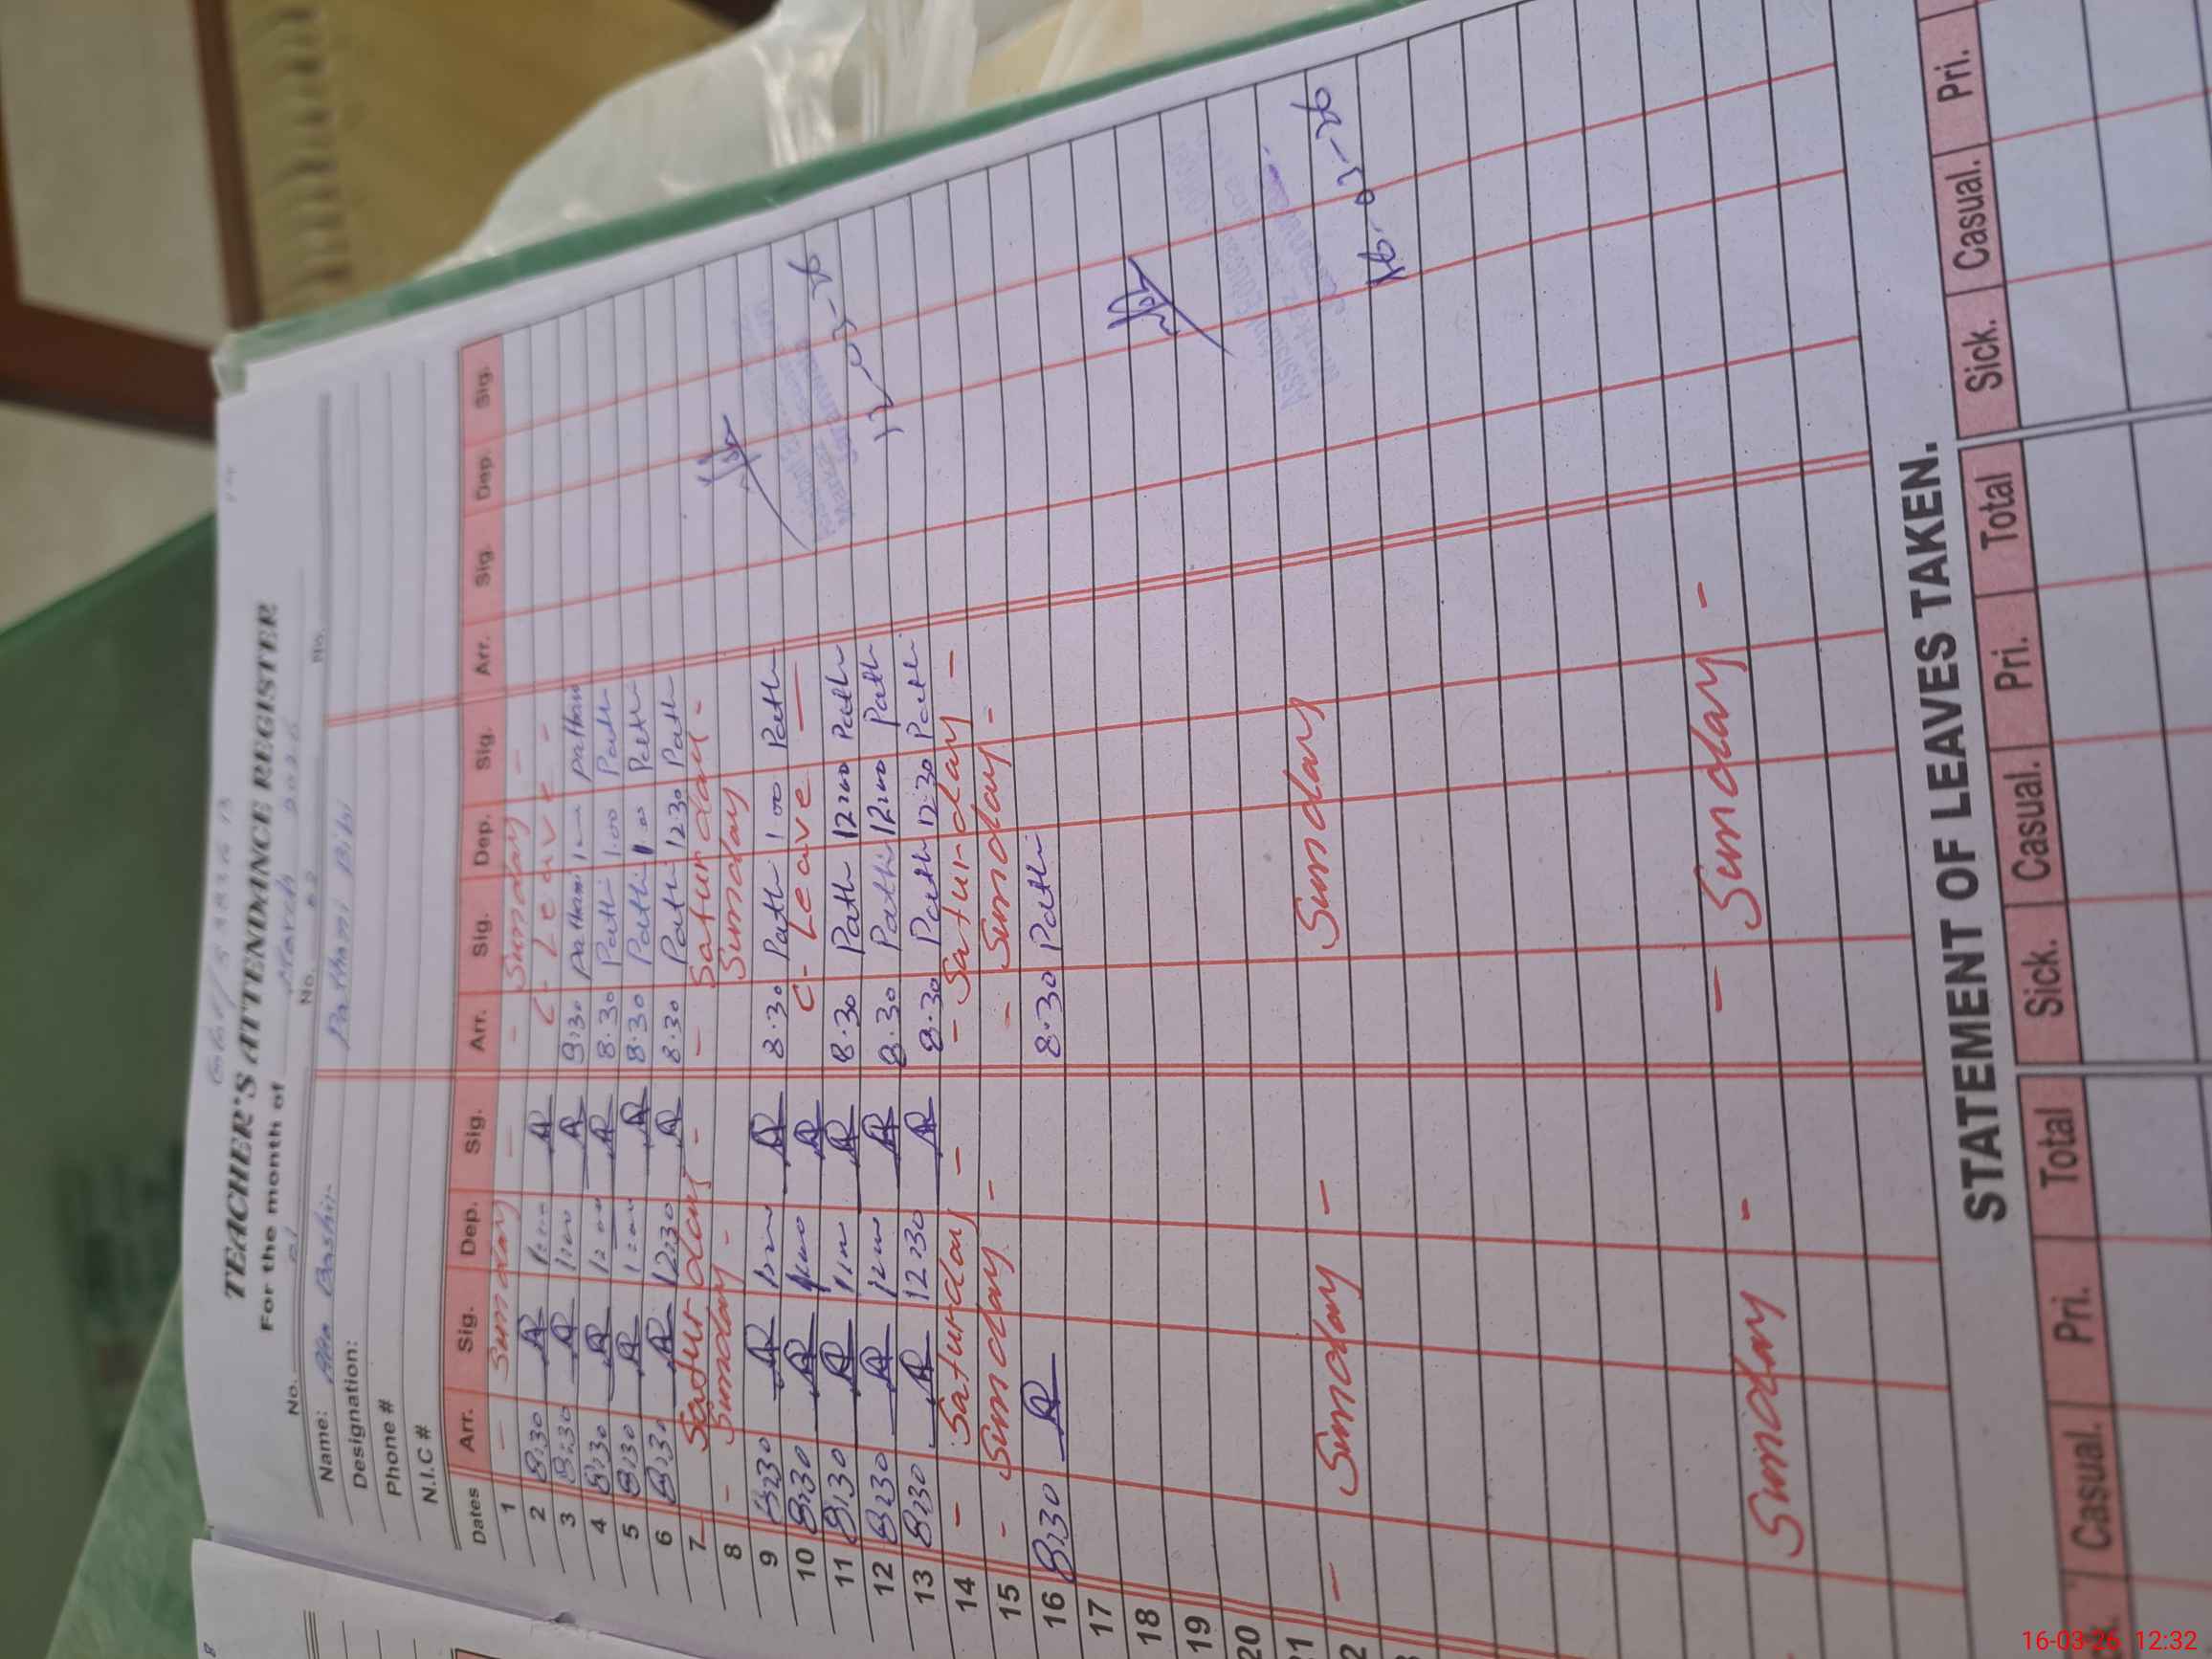 TEACHER'S ATTENDANCE REGISTER
For the month of March 2026
No. 01 No. 02 No.
Name: Bashir Pathani Bibi
Designation:
Phone #
N.I.C #
Dates Arr. Sig. Dep. Sig. Arr. Sig. Dep. Sig. Arr. Sig. Dep. Sig.
1 - Sunday - - Sunday -
2 8:30 1:00 C- Leave -
3 8:30 1:00 8:30 Pathani 1:00 Pathani
4 8:30 1:00 8.30 Pathi 1.00 Pathi
5 8:30 1:00 8.30 Pathi 1:00 Pathi
6 8:30 12:30 8.30 Pathi 12:30 Pathi
7 Saturday - - Saturday -
8 - Sunday - Sunday
9 8:30 1:00 8.30 Pathi 1:00 Pathi
10 8:30 1:00 C- Leave
11 8:30 1:00 8.30 Pathi 12:00 Pathi
12 8:30 12:00 8.30 Pathi 12:00 Pathi
12-03-26
13 8:30 12:30 8.30 Pathi 12:30 Pathi
14 - Saturday - - Saturday -
15 - Sunday - - Sunday -
16 8:30 8.30 Pathi
17
18
19
20
21
2 - Sunday - Sunday
16-03-26
Sunday - - Sunday -
STATEMENT OF LEAVES TAKEN.
Casual. Pri. Total Sick. Casual. Pri. Total Sick. Casual. Pri.
16-03-26 12:32